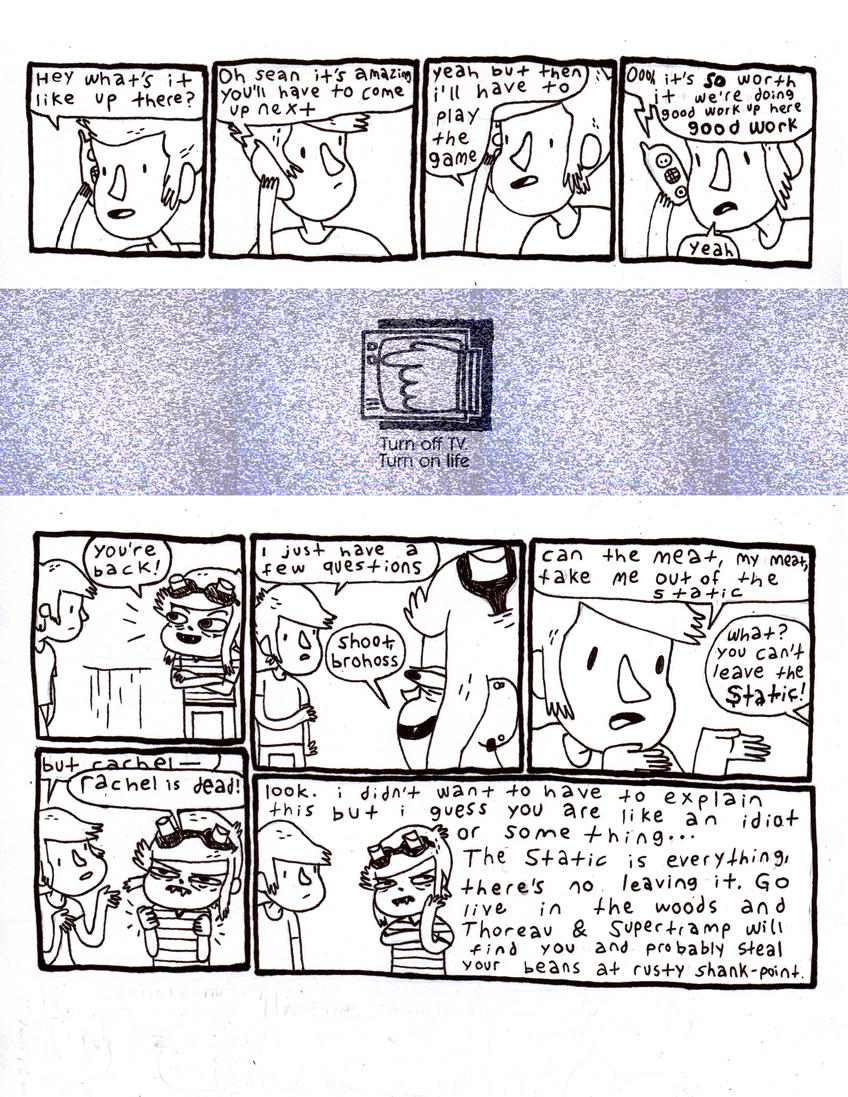 Hey what's it
like up there?
Oh sean it's amazing
you'll have to come
up next
yeah but then
i'll have to
play
the
game
Oooh it's so worth
it we're doing
good work up here
good work
yeah
Turn off TV.
Turn on life
you're
back!
i just have a
few questions
shoot,
brohoss
can the meat, my meat,
take me out of the
static
what?
you can't
leave the
Static!
but rachel—
rachel is dead!
look. i didn't want to have to explain
this but i guess you are like an idiot
or some thing...
The Static is everything,
there's no leaving it. Go
live in the woods and
Thoreau & Supertramp will
find you and probably steal
your beans at rusty shank-point.